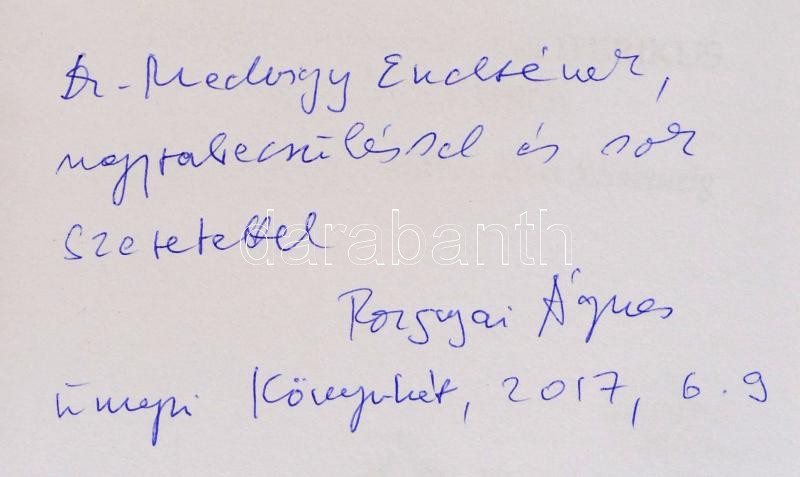 Dr. Medvigy Endrének,
nagyrabecsüléssel és sok
szeretettel
darabanth
Ágnes
Ünnepi Könyvhét, 2017, 6. 9